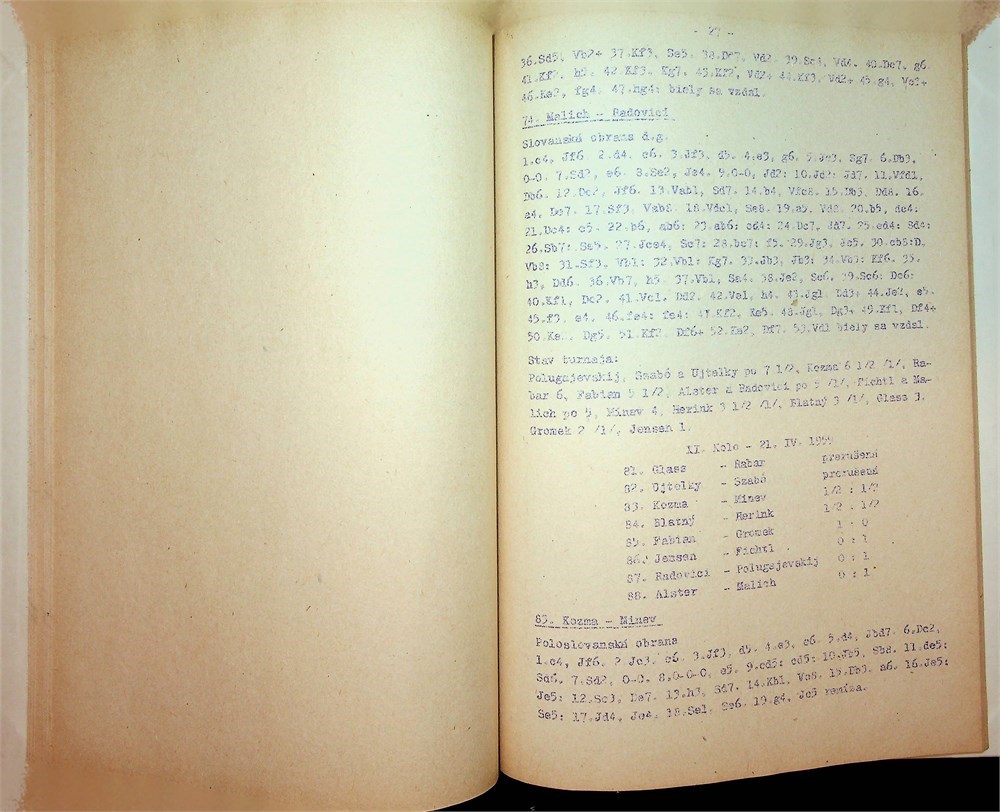 - 27 -
36.Sd5, Vb2+ 37.Kf3, Se5. 38.Df7, Vd2. 39.Sc4, Vd4. 40.Dc7, g6
41.Kf2, h5. 42.Kf3, Kg7. 43.Kf2, Vd2+ 44.Kf3, Vd2+ 45.g4, Vc3+
46.Ke2, fg4. 47.hg4: biely sa vzdal.
74. Malich - Radovici
Slovanská obrana d.g.
1.c4, Jf6 2.d4. c6. 3.Jf3, d5. 4.e3, g6. 5.Jc3, Sg7. 6.Db3,
0-0. 7.Sd2, e6. 8.Se2, Je4. 9.0-0, Jd2: 10.Jd2: Jd7. 11.Vfd1,
Db6. 12.Dc2, Jf6. 13.Vab1, Sd7. 14.b4, Vfc8. 15.Db3, Dd8. 16.
a4, De7. 17.Sf3, Vab8. 18.Vdc1, Se8. 19.a5, Vd8. 20.b5, dc4:
21.Dc4: c5. 22.b6, ab6: 23.ab6: cd4: 24.Dc7, Jd7. 25.ed4: Sd4:
26.Sb7: Se5. 27.Jce4, Sc7: 28.bc7: f5. 29.Jg3, Jc5. 30.cb8:D,
Vb8: 31.Sf3, Vb1: 32.Vb1: Kg7. 33.Jb3, Jb3: 34.Vb3: Kf6. 35.
h3, Dd6. 36.Vb7, h5. 37.Vb1, Sa4. 38.Je2, Sc6. 39.Sc6: Dc6:
40.Kf1, Dc2. 41.Vc1, Dd2. 42.Va1, h4. 43.Jg1, Dd3+ 44.Je2, e5.
45.f3, e4. 46.fe4: fe4: 47.Kf2, Ke5. 48.Jg1, Dg3+ 49.Kf1, Df4+
50.Ke , Dg5. 51.Kf2, Df6+ 52.Ke2, Df7. 53.Vd1 biely sa vzdal.
Stav turnaja:
Polugajevskij, Szabó a Ujtelky po 7 1/2, Kozma 6 1/2 /1/, Ra-
bar 6, Fabian 5 1/2, Alster a Radovici po 5 /1/, Fichtl a Ma-
lich po 5, Minev 4, Herink 3 1/2 /1/, Blatný 3 /1/, Glass 3,
Gromek 2 /1/, Jensen 1.
XI. Kolo - 21. IV. 1959
81. Glass - Rabar prerušená
82. Ujtelky - Szabó prerušená
83. Kozma - Minev 1/2 : 1/2
84. Blatný - Herink 1/2 : 1/2
85. Fabian - Gromek 1 : 0
86. Jensen - Fichtl 0 : 1
87. Radovici - Polugajevskij 0 : 1
88. Alster - Malich 0 : 1
83. Kozma - Minev
Poloslovanská obrana
1.c4, Jf6. 2.Jc3. c6. 3.Jf3, d5. 4.e3, e6. 5.d4, Jbd7. 6.Dc2,
Sd6. 7.Sd2, 0-0. 8.0-0-0, e5. 9.cd5: cd5: 10.Jb5, Sb8. 11.de5:
Je5: 12.Sc3, De7. 13.h3, Sd7. 14.Kb1, Vc8. 15.Db3, a6. 16.Je5:
Se5: 17.Jd4, Je4. 18.Se1, Sc6. 19.g4, Jc5 remíza.